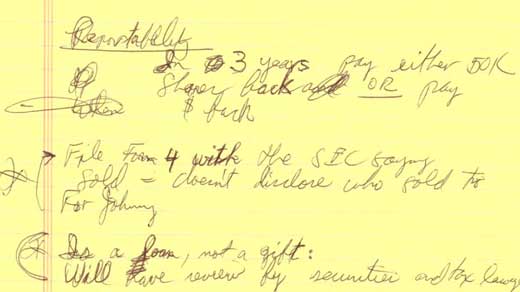 Reportability
In 3 years pay either 50K
Shares back OR pay
$ back
File Form 4 with the SEC saying
sold = doesn't disclose who sold to
For Johnny
Is a loan, not a gift:
Will have review by securities and tax lawyer